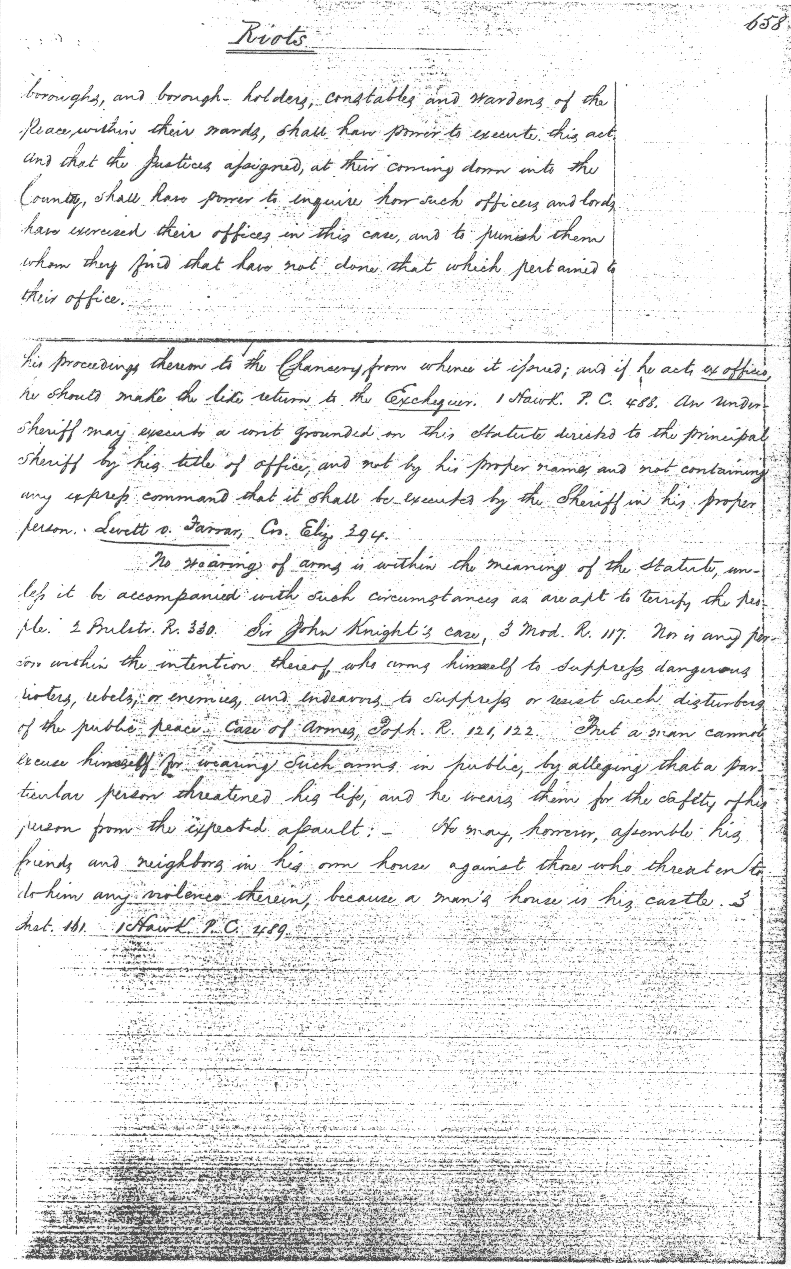 658
Riots
boroughs, and borough-holders, constables and wardens of the
Peace, within their wards, shall have power to execute this act
and that the Justices assigned, at their coming down into the
County, shall have power to enquire how such officers and lords
have exercised their offices in this case, and to punish them
whom they find that have not done that which pertained to
their office.
his proceedings thereon to the Chancery, from whence it issued; and if he acts ex officio,
he should make the like return to the Exchequer. 1 Hawk. P. C. 488. An under-
sheriff may execute a writ grounded on this Statute directed to the principal
Sheriff by his title of office, and not by his proper name, and not containing
any express command that it shall be executed by the Sheriff in his proper
person. Levett v. Farrar, Cro. Eliz. 294.
No wearing of arms is within the meaning of the Statute, un-
less it be accompanied with such circumstances as are apt to terrify the peo-
ple. 2 Bulstr. R. 330. Sir John Knight's case, 3 Mod. R. 117. Nor is any per-
son within the intention thereof, who arms himself to suppress dangerous
rioters, rebels, or enemies, and endeavors to suppress or resist such disturbers
of the public peace. Case of Armes, Poph. R. 121, 122. But a man cannot
excuse himself for wearing such arms in public, by alleging that a par-
ticular person threatened his life, and he wears them for the safety of his
person from the expected assault: - He may, however, assemble his
friends and neighbors in his own house against those who threaten to
do him any violence therein, because a man's house is his castle. 3
Inst. 161. 1 Hawk. P. C. 489.